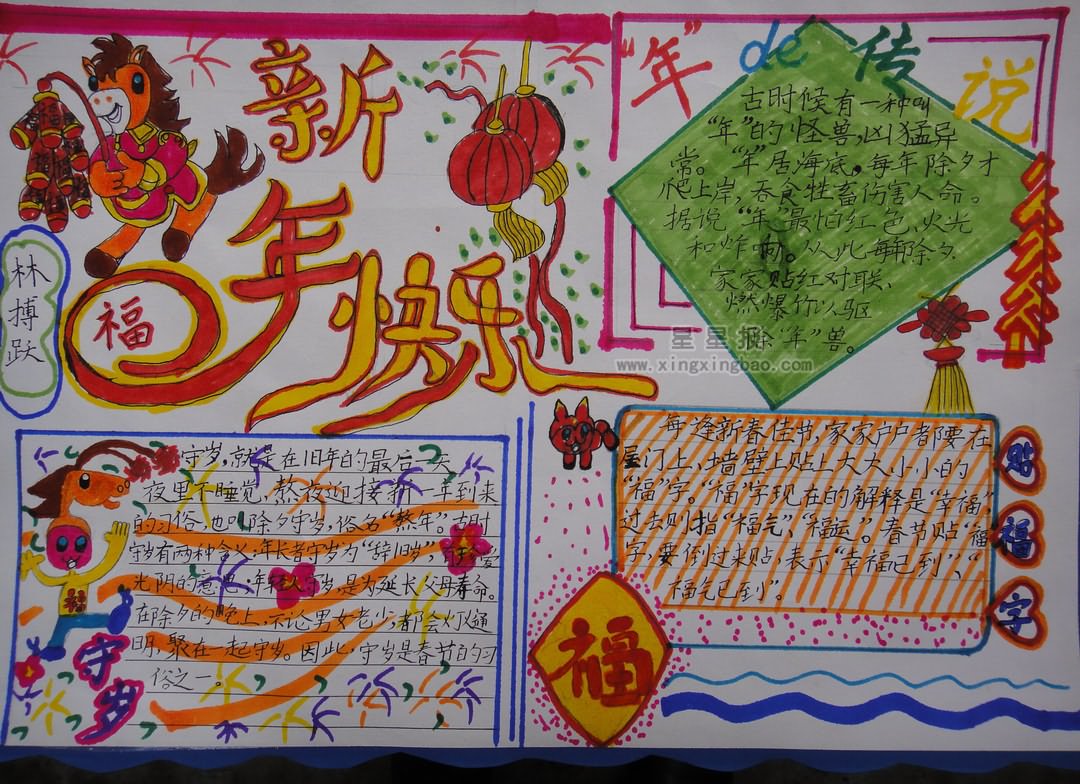 新年快乐
福
林搏跃
"年"de传说
古时候有一种叫
"年"的怪兽,凶猛异
常。"年"居海底,每年除夕才
爬上岸,吞食牲畜伤害人命。
据说"年"最怕红色、火光
和炸响。从此每年除夕
家家贴红对联、
燃爆竹以驱
除"年"兽。
星星报
www.xingxingbao.com
守岁,就是在旧年的最后一天
夜里不睡觉,熬夜迎接新一年到来
的习俗,也叫除夕守岁,俗名"熬年"。古时
守岁有两种含义:年长者守岁为"辞旧岁",有珍爱
光阴的意思;年轻人守岁,是为延长父母寿命。
在除夕的晚上,不论男女老少,都会灯火通
明,聚在一起守岁。因此,守岁是春节的习
俗之一。
守岁
福
每逢新春佳节,家家户户都要在
屋门上、墙壁上贴上大大小小的
"福"字。"福"字现在的解释是"幸福",
过去则指"福气"、"福运"。春节贴"福"
字,要倒过来贴,表示"幸福已到"、"
福气已到"。
贴福字
福